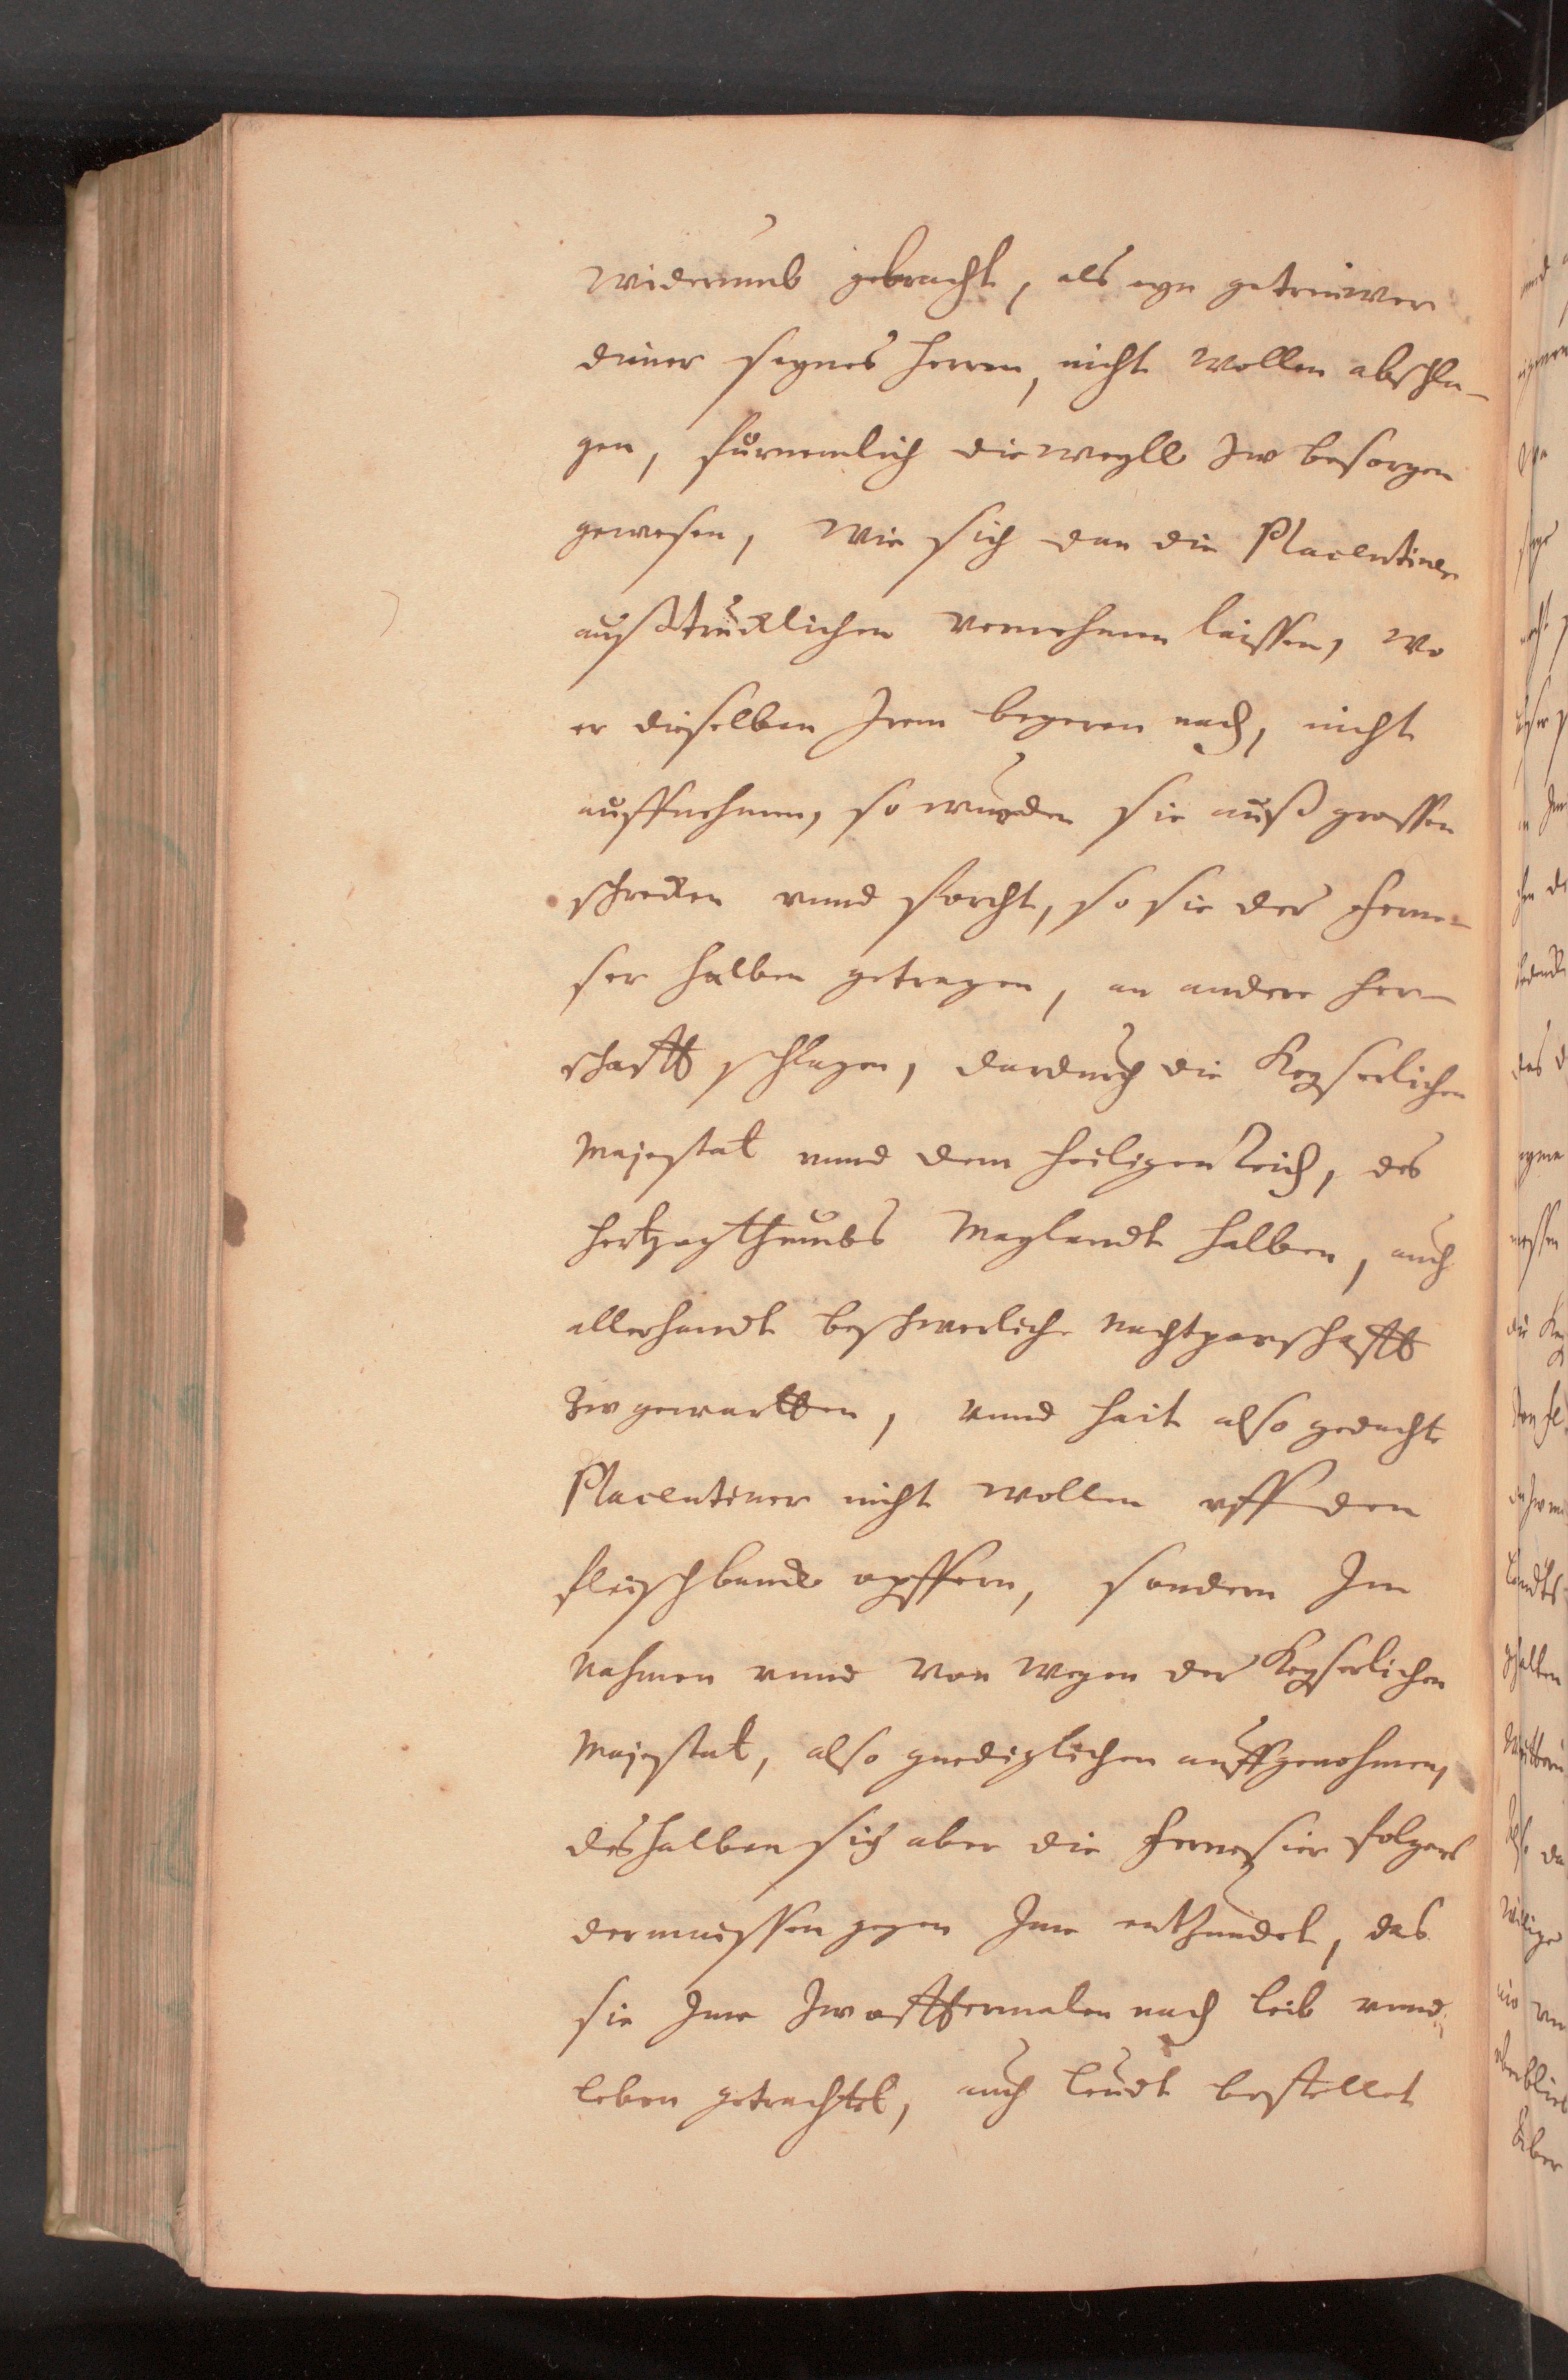 widerumb gebracht, als eyn getreuwer
diener seynes herren, nicht wollen abschla-
gen, fürnemlich dieweyll zw besorgen
gewesen, wie sich dan die Placentiner
außtrucklichen vernehmen laissen, wo
er dieselben Irem begeren nach, nicht
auffnehmen, so wurden sie auß grossen
schrecken vnnd forcht, so sie der Ferne-
ser halben getragen, an andere herr-
schafft schlagen, dardurch die Keyserlichen
Majestat vnnd dem heiligen Reich, des
hertzogthumbs Meylandt halben, auch
allerhandt beschwerliche nachtparschafft
zw gewartten, vnnd hait also gedachte
Placentiner nicht wollen vff den
fleischbanck opffern, sondern Im
nahmen vnnd von wegen der Keyserlichen
Majestat, also gnediglichen auffgenohmen,
deshalben sich aber die Fernesier folgens
dermaissen gegen Ime enthzundet, das
sie Ime zw offtermalen nach leib vnnd
leben getrachtet, auch leudt bestellet